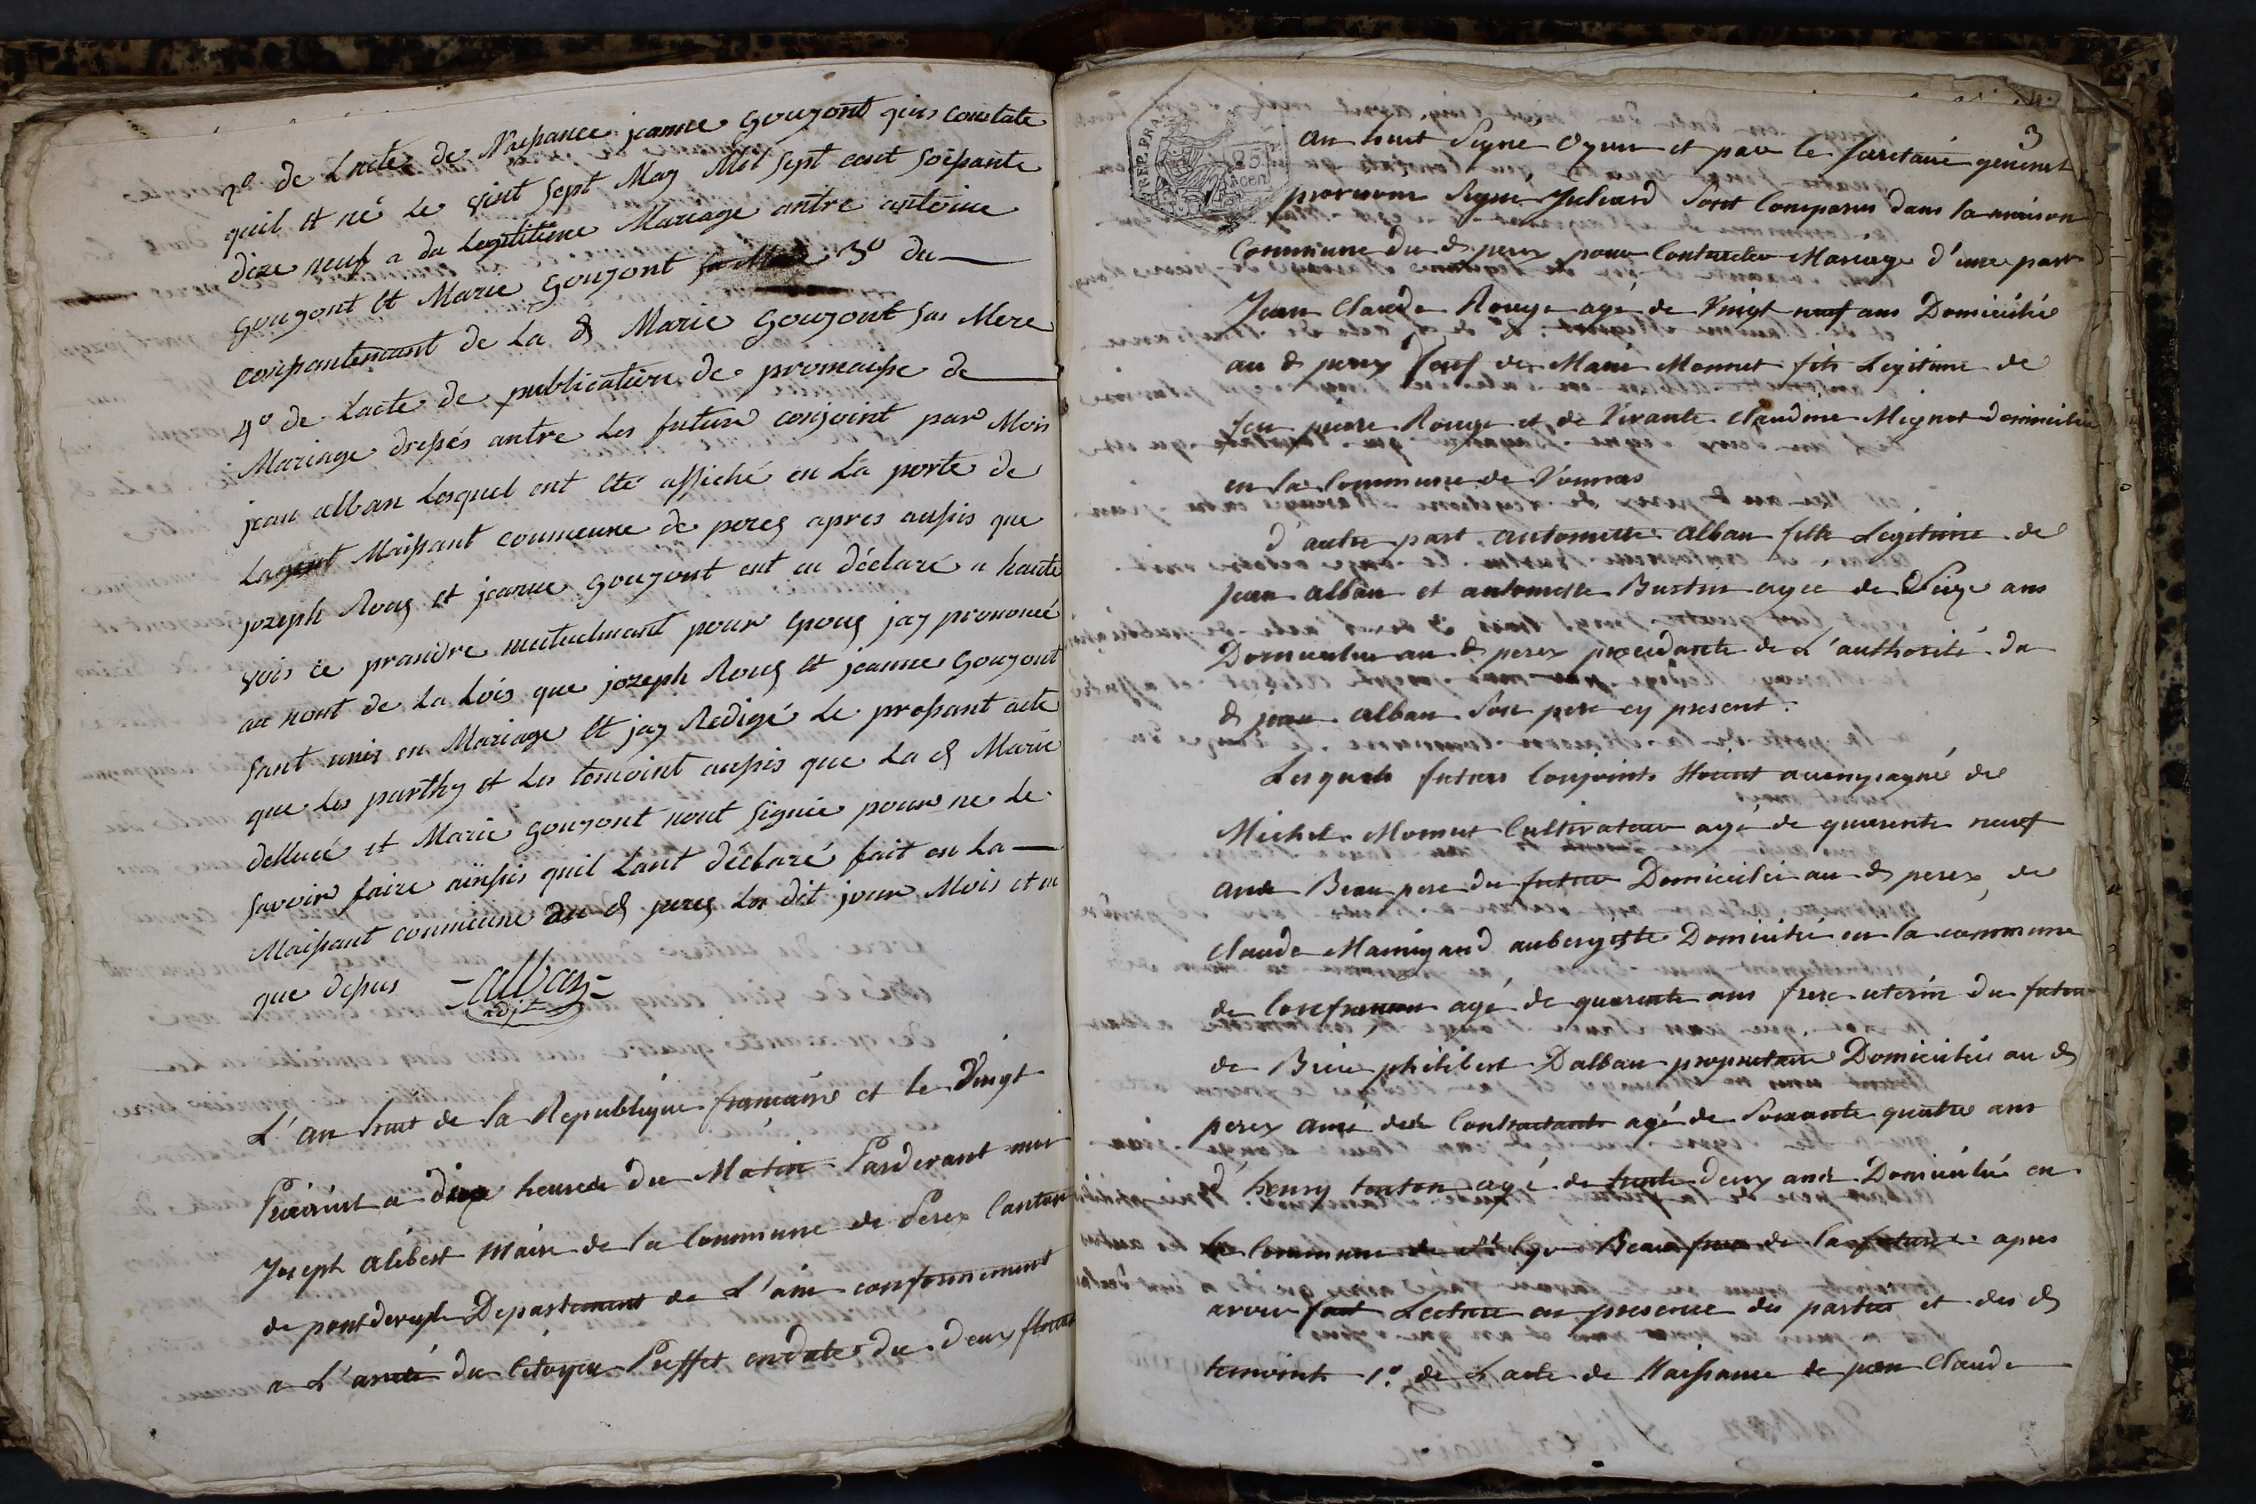 2º de Lactes de Naissance jeanne Goujont quis constate
quil et né le vint sept May Mil sept cent soissante
dize neuf a du Legititime Mariage antre antoine
Goujont et Marie Goujont 3º du
consantemant de La d Marie Goujont sas Mere
4º de Lacte de publication de promaisse de
Mariage dressés antre les future conjoint par Mois
jean alban Lesquel ont ete affiché en La porte de
Maissont coumeune de perex apres aussis que
jozeph Roux et jeanne Goujont ont en déclaré a haute
vois ce prandre mutuelmant pour epoux jay prononcé
au nont de La Lois que jozeph Roux et jeanne Goujont
sant unis en Mariage et jay Redigé Le prossant acte
que Les parthy et Les temoint aussis que La d Marie
et Marie goujont nont signée pour ne Le
savoir faire ainssis quil Lant déclaré fait en La
Maissant coumeune du d perex Les dit jour Mois et an
que dessus alban
adjt
L'an huit de la Republique francaise et le vingt
Prairial a dix heures du Matin Pardevant moi
Joseph alibert Maire de la Commune de Perex Canton
de pontdeveyle Departement de L'ain conformement
a L'arreté du Citoyen Preffet en date du deux floreal
3
REP. FRA. 25 cen
an huit Signé Ozun et par le Secretaire général
Signé Juhiard Sont Comparus dans la maison
Commune du d perex pour Contracter Mariage d'une part
Jean Claude Rouge agé de Vingt neuf ans Domicilié
au d perex Veuf de Marie Monnet fils Legitime de
feu pierre Rouge et de Vivante Claudine Mignot domiciliée
en la Commune de Vonnas
d'autre part antoinette alban fille Légitime de
Jean alban et antoinette Buston agée de Seize ans
Domiciliée au d perex procedante de L'authorité du
d jean alban Son pere cy present.
Lesquels futurs Conjoints étoient accompagné de
Michel Monnet Cultivateur agé de quarente neuf
ans Beau pere du futur Domicilié au d perex, de
Claude Mainigand aubergiste Domicilié en la commune
de agé de quarente ans frere uterin du futur
de Brice philibert Dalban propriétaire Domicilié au d
perex amé des Contractants agé de Soixante quatre ans
d'henry tonton agé de trente deux ans Domicilié en
la Commune de St Cyr Beau frere de la future apres
avoir fait Lecture en presence des parties et des d
temoints 1.º de L'acte de Naissance de jean Claude